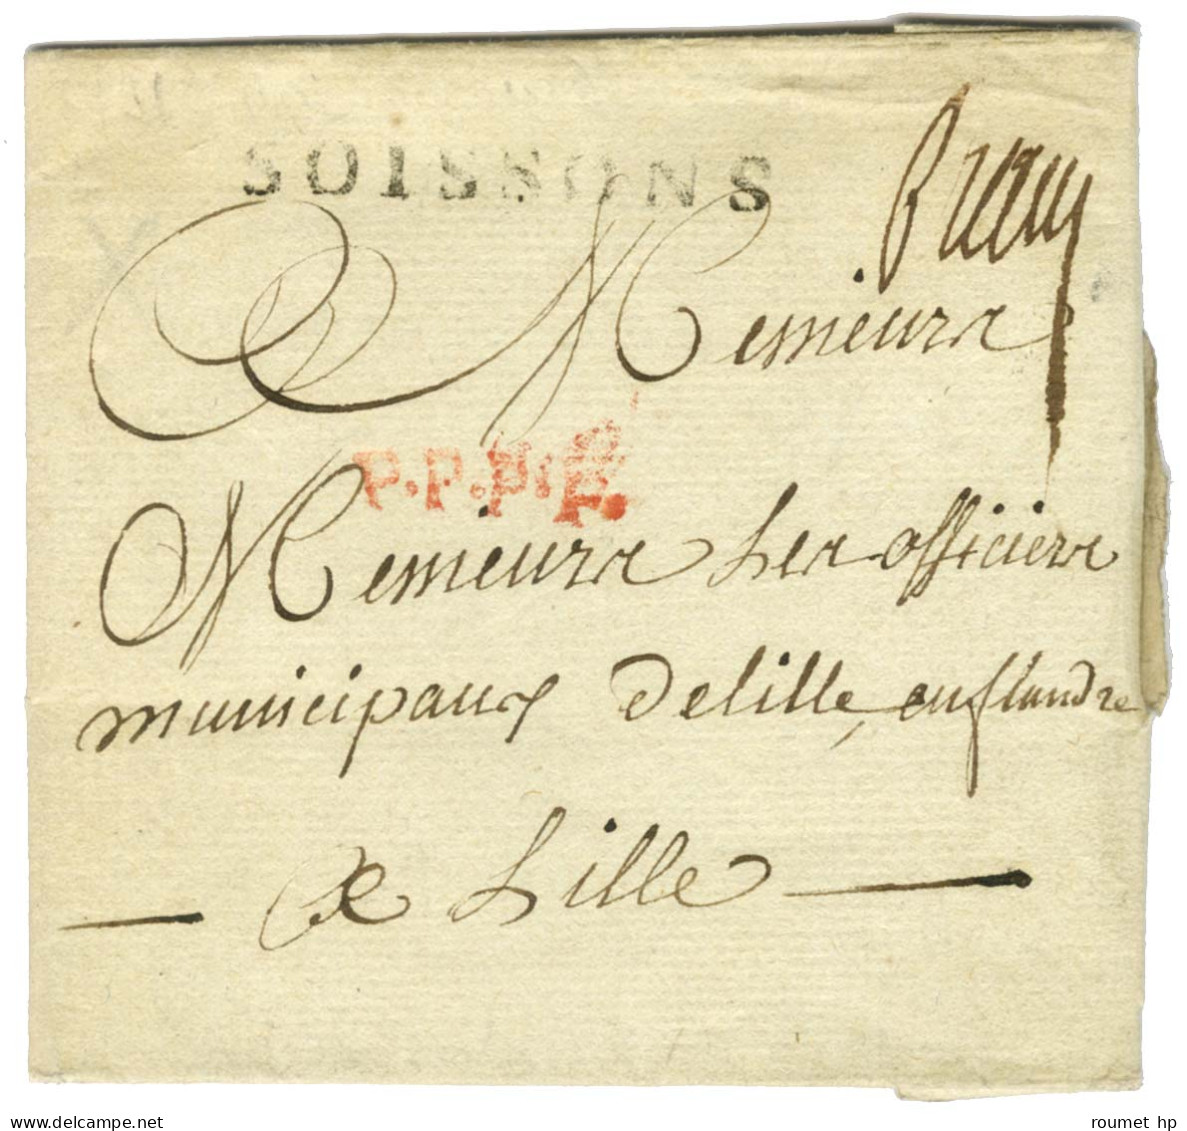 SOISSONS
franc
Messieurs
P.P.P.P.
Messieurs Les officiers
municipaux De lille, en flandre
A Lille
roumet hp